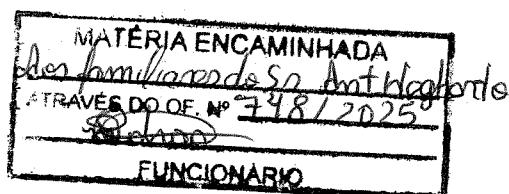 MATÉRIA ENCAMINHADA
dos familiares do Sr.
ATRAVÉS DO OF. Nº 748/2025
FUNCIONÁRIO